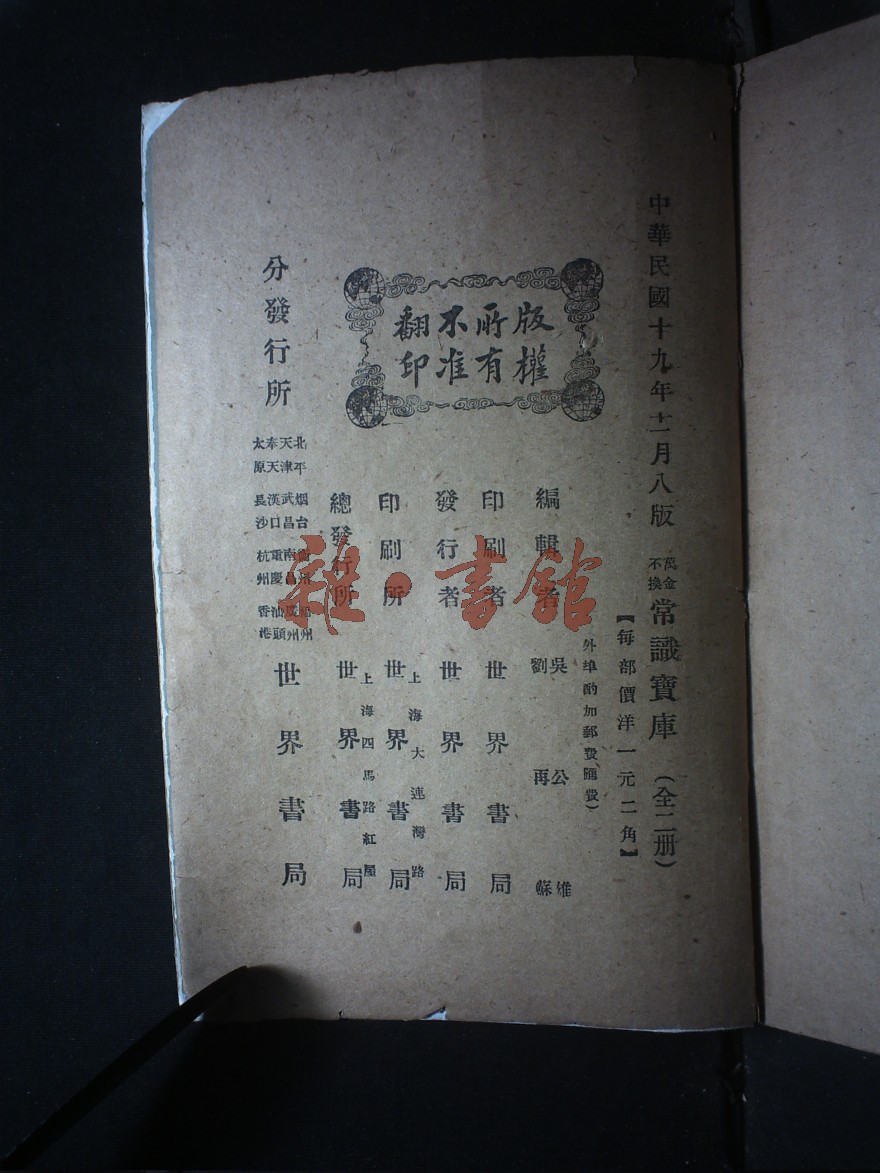 中華民國十九年十二月八版
萬金不換常識寶庫（全二册）
【每部價洋一元二角】
外埠酌加郵費匯費）
版權所有
不准翻印
編輯者 吳公雄 劉再蘇
印刷者 世界書局
發行者 世界書局
印刷所 上海大連灣路 世界書局
總發行所 上海四馬路紅屋 世界書局
分發行所 北平 天津 奉天 太原 烟台 武昌 漢口 長沙 南昌 重慶 杭州 汕頭 香港 世界書局
雜·書館